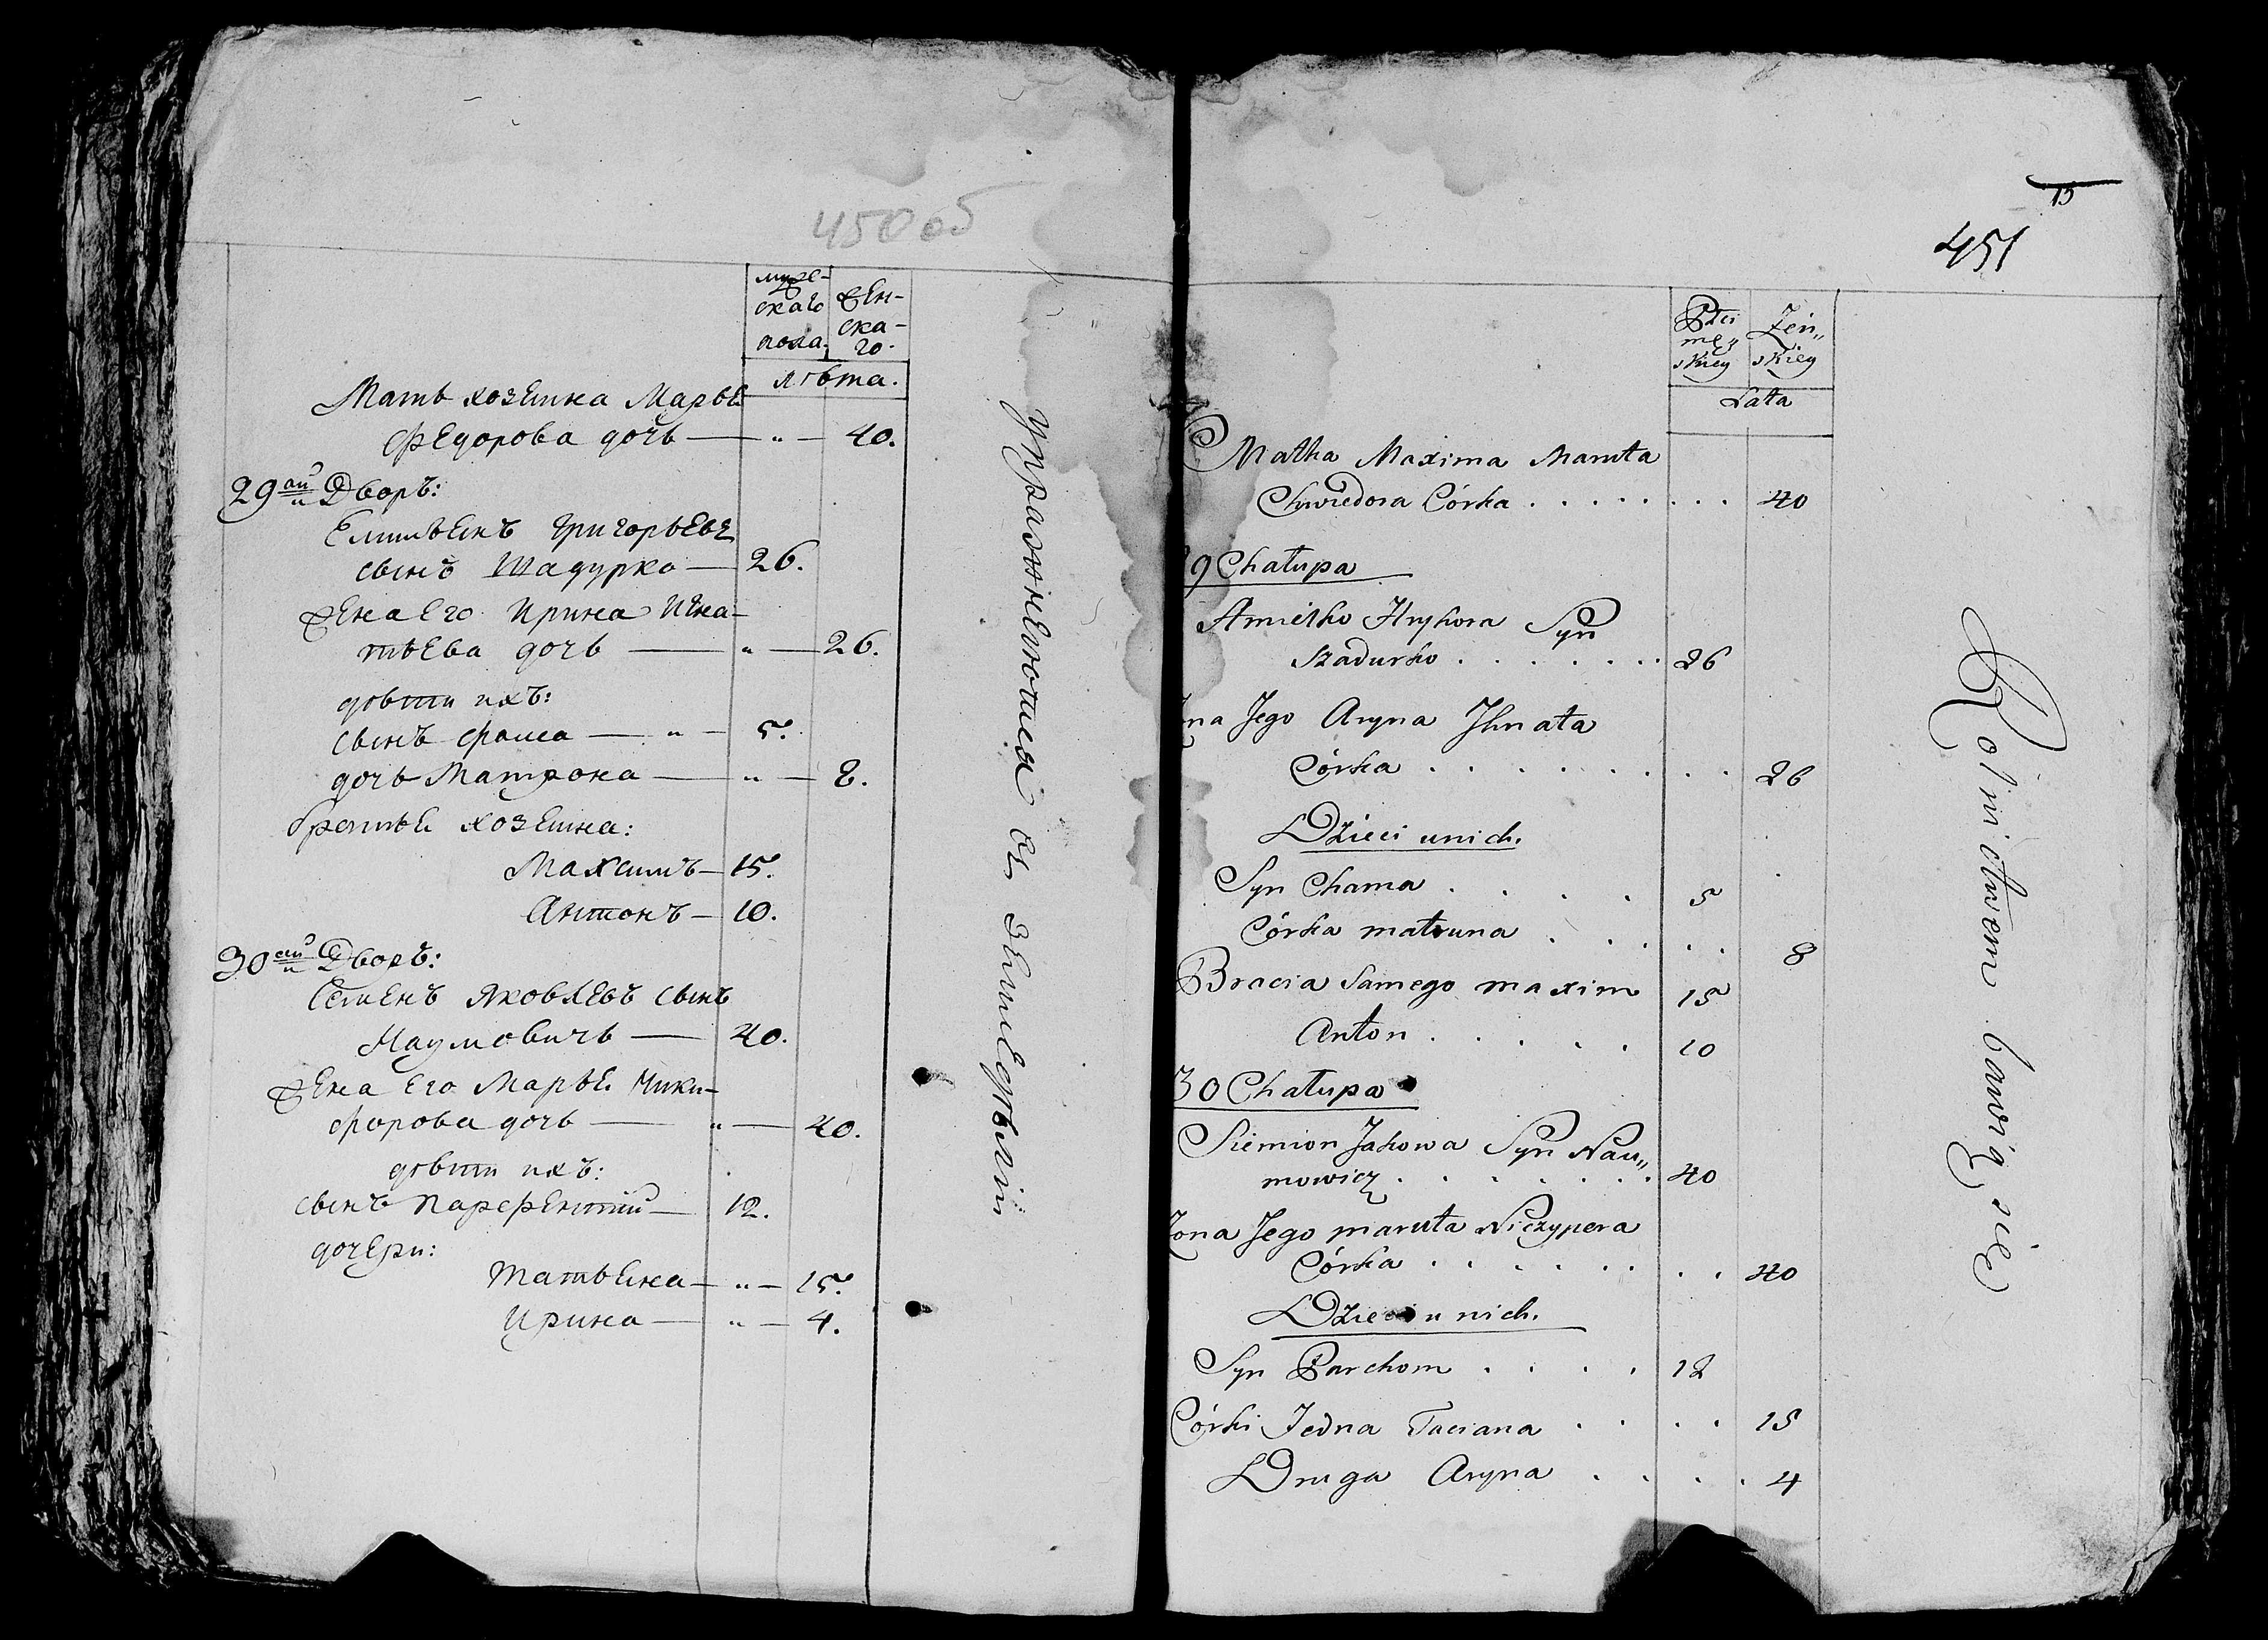 450 об
муже-
скаго
пола.
жен-
ска-
го.
лѣта.
Мать хозяина Марья
Федорова дочь — „ — 40.
29ый Дворъ:
Емильянъ Григорьевъ
сынъ Шадурко — 26.
жена его Ирина Игна-
тьева дочь — „ — 26.
дѣти ихъ:
сынъ Фама — „ — 5.
дочь Матрона — „ — 8.
братья хозяина:
Максимъ — 15.
Антонъ — 10.
30ый Дворъ:
Семенъ Яковлевъ сынъ
Наумовичъ — 40.
жена его Марья Ники-
форова дочь — „ — 40.
дѣти ихъ:
сынъ Парфентий — 12.
дочери:
Татьяна — „ — 15.
Ирина — „ — 4.
упражняются въ земледѣлiи
15
451
Płci
męz
skiey
Żeń„
skiey
Lata
Matka Maxima Maruta
Chwiedora Córka . . . . . . . . 40
29 Chałupa
Amielko Hryhora Syn
Szadurko . . . . . . . 26
Zona Jego Aryna Jhnata
Córka . . . . . . . . . 26
Dzieci u nich.
Syn Chama . . . . 5
Córka matruna . . . . . 8
Bracia Samego maxim 15
Anton . . . . . 10
30 Chałupa
Siemion Jakowa Syn Nau„
mowicz . . . . . . . 40
Zona Jego maruta Niczypera
Córka . . . . . . . . 40
Dzieci u nich.
Syn Parchom . . . . 12
Córki Jedna Taciana . . . . 15
Druga Aryna . . . . 4
Rolnictwem bawią się